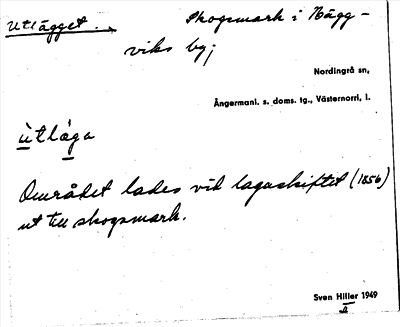 Utlägget. Skogsmark i Någg-
viks by;
Nordingrå sn,
Ångermanl. s. doms. tg., Västernorrl. l.
ùtlǻga
Området lades vid lagaskiftet (1856)
ut till skogsmark.
Sven Hiller 1949